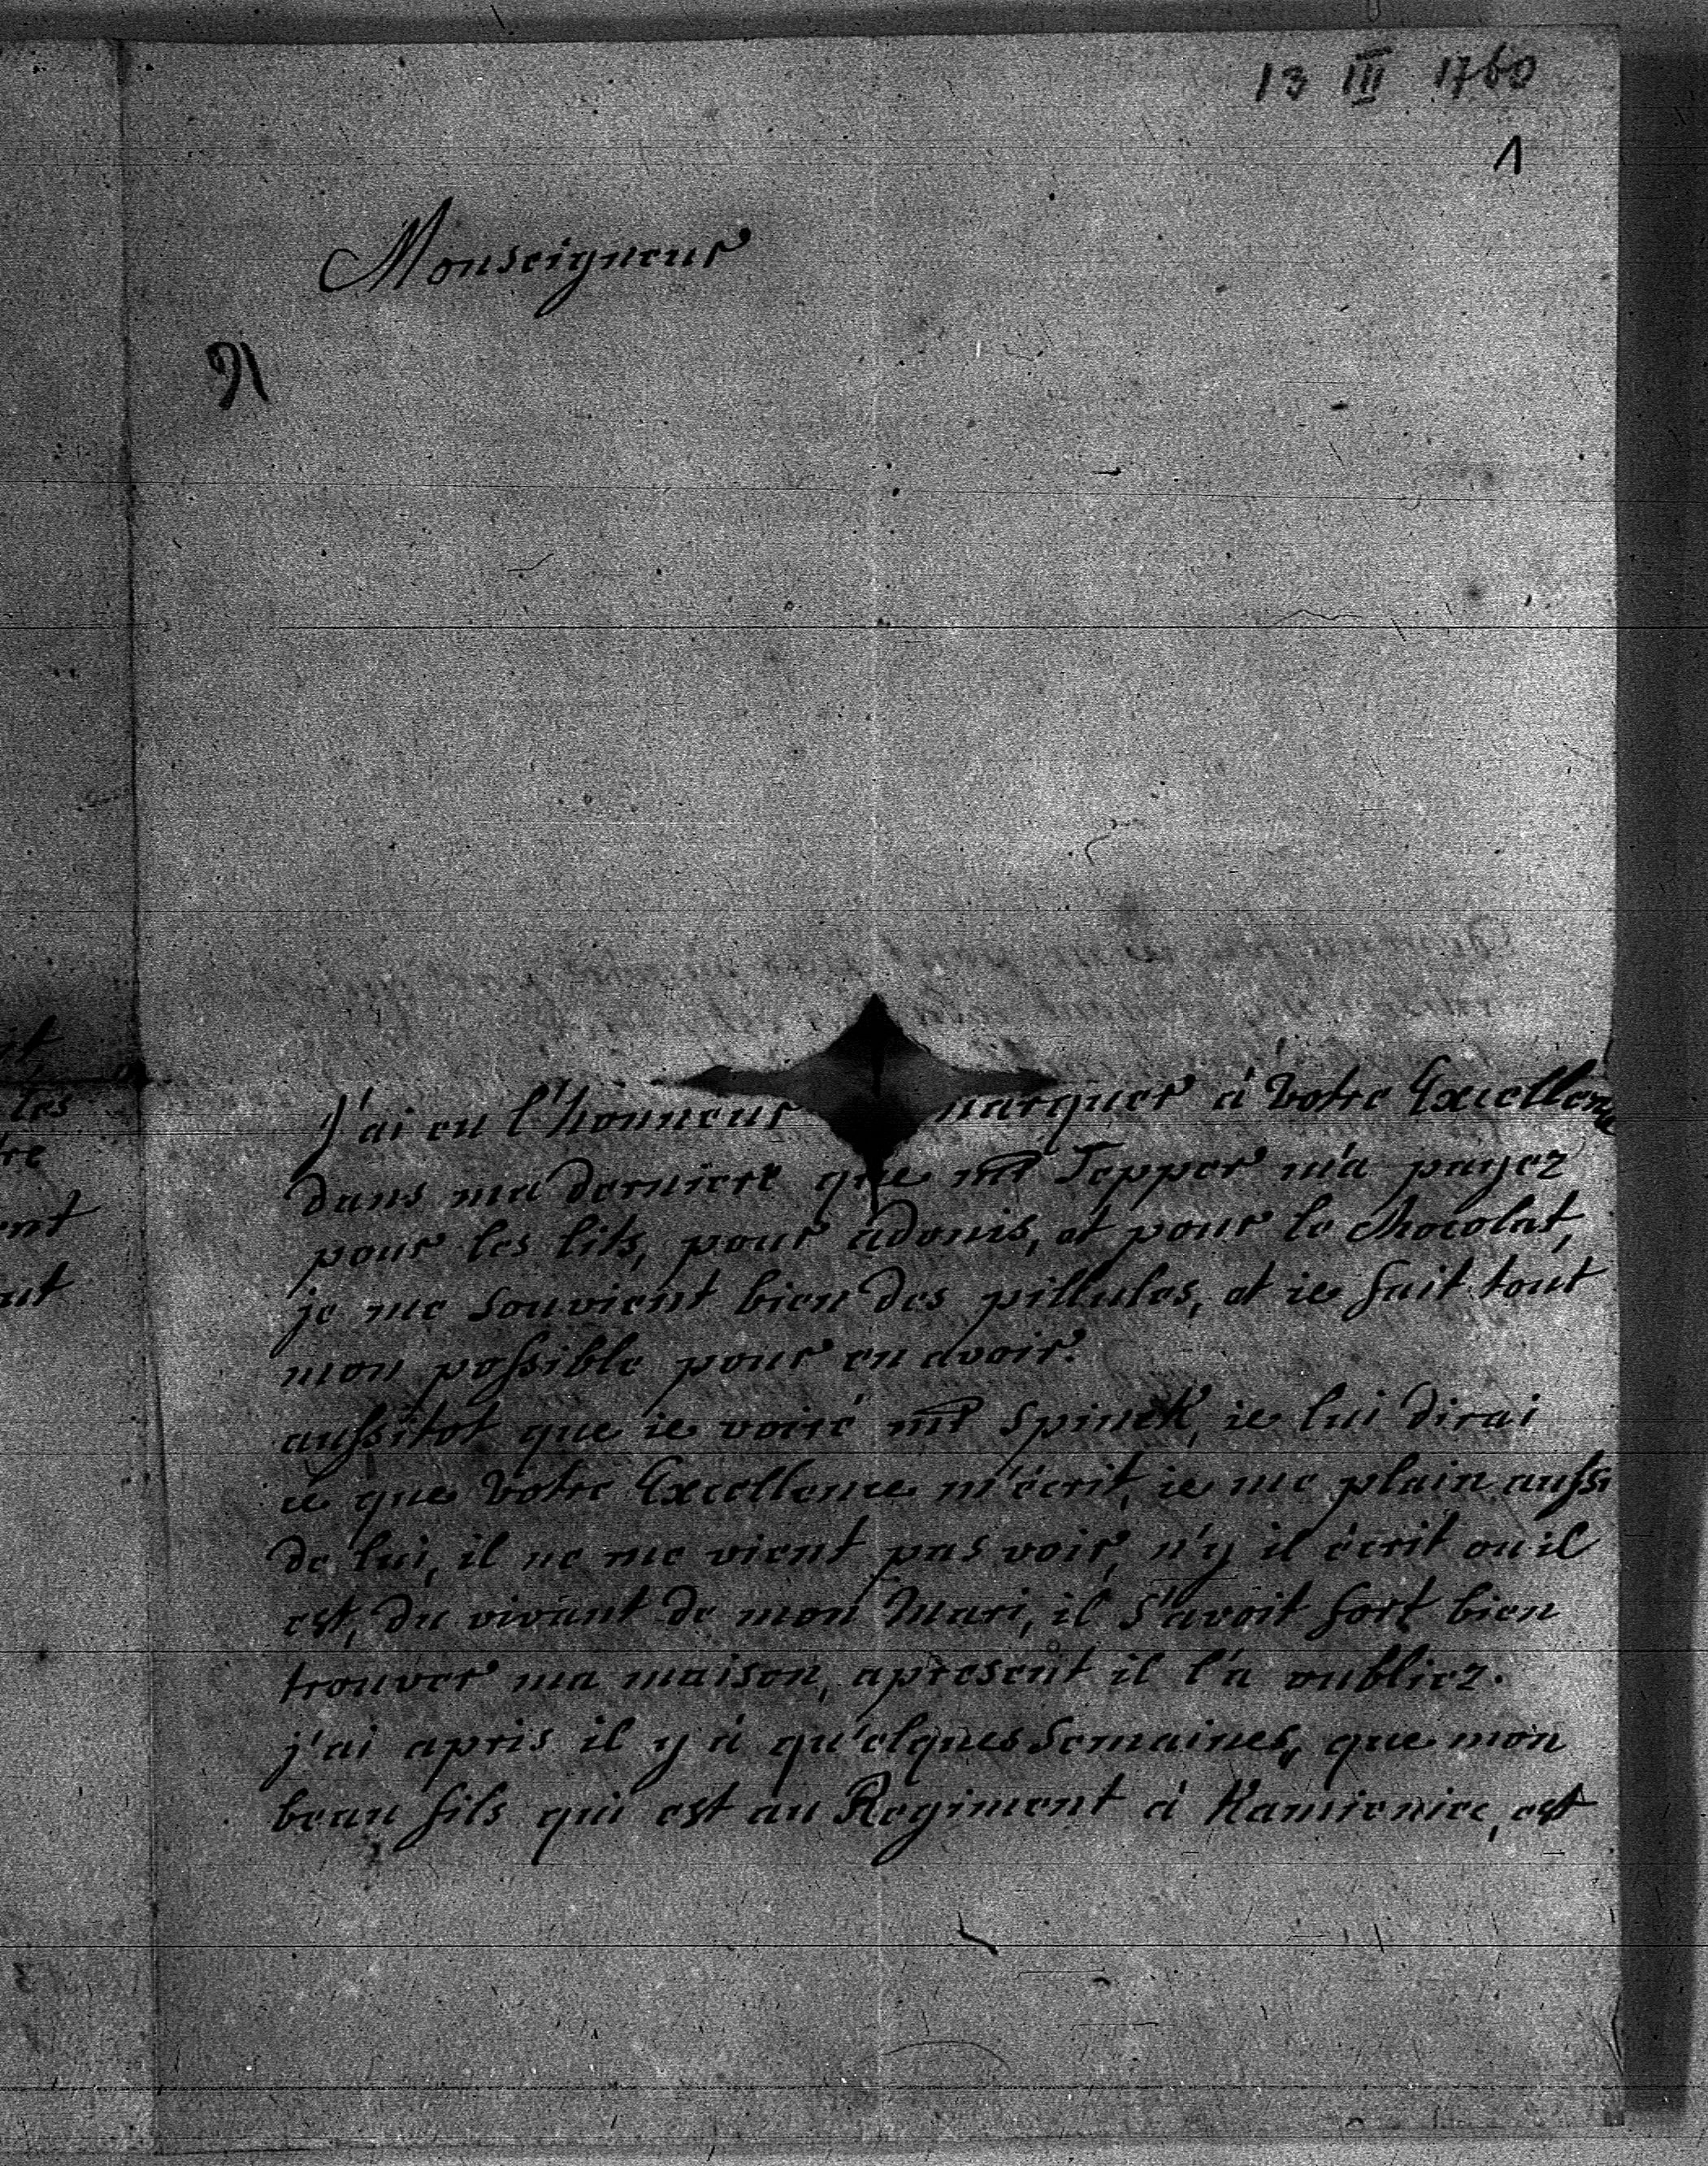 13 III 1760
1
Monseigneur
J'ai eu l'honneur marquer à Votre Excellence
dans ma derniere que mr Tepper m'a payez
pour les lits, pour adonis, et pour le chocolat,
je me souvient bien des pillules, et ie fait tout
mon possible pour en avoir.
aussitot que ie voiré mr Spinek, ie lui dirai
ce que Votre Excellence m'écrit, ie me plain aussi
de lui, il ne me vient pas voir, n'y il écrit ou il
est, du vivant de mon Mari, il s'avoit fort bien
trouver ma maison, apresent il l'a oubliez.
j'ai apris il y à qu'elques semaines, que mon
beau fils qui est au Regiment à Kamieniec, est
it
les
re
ent
ut